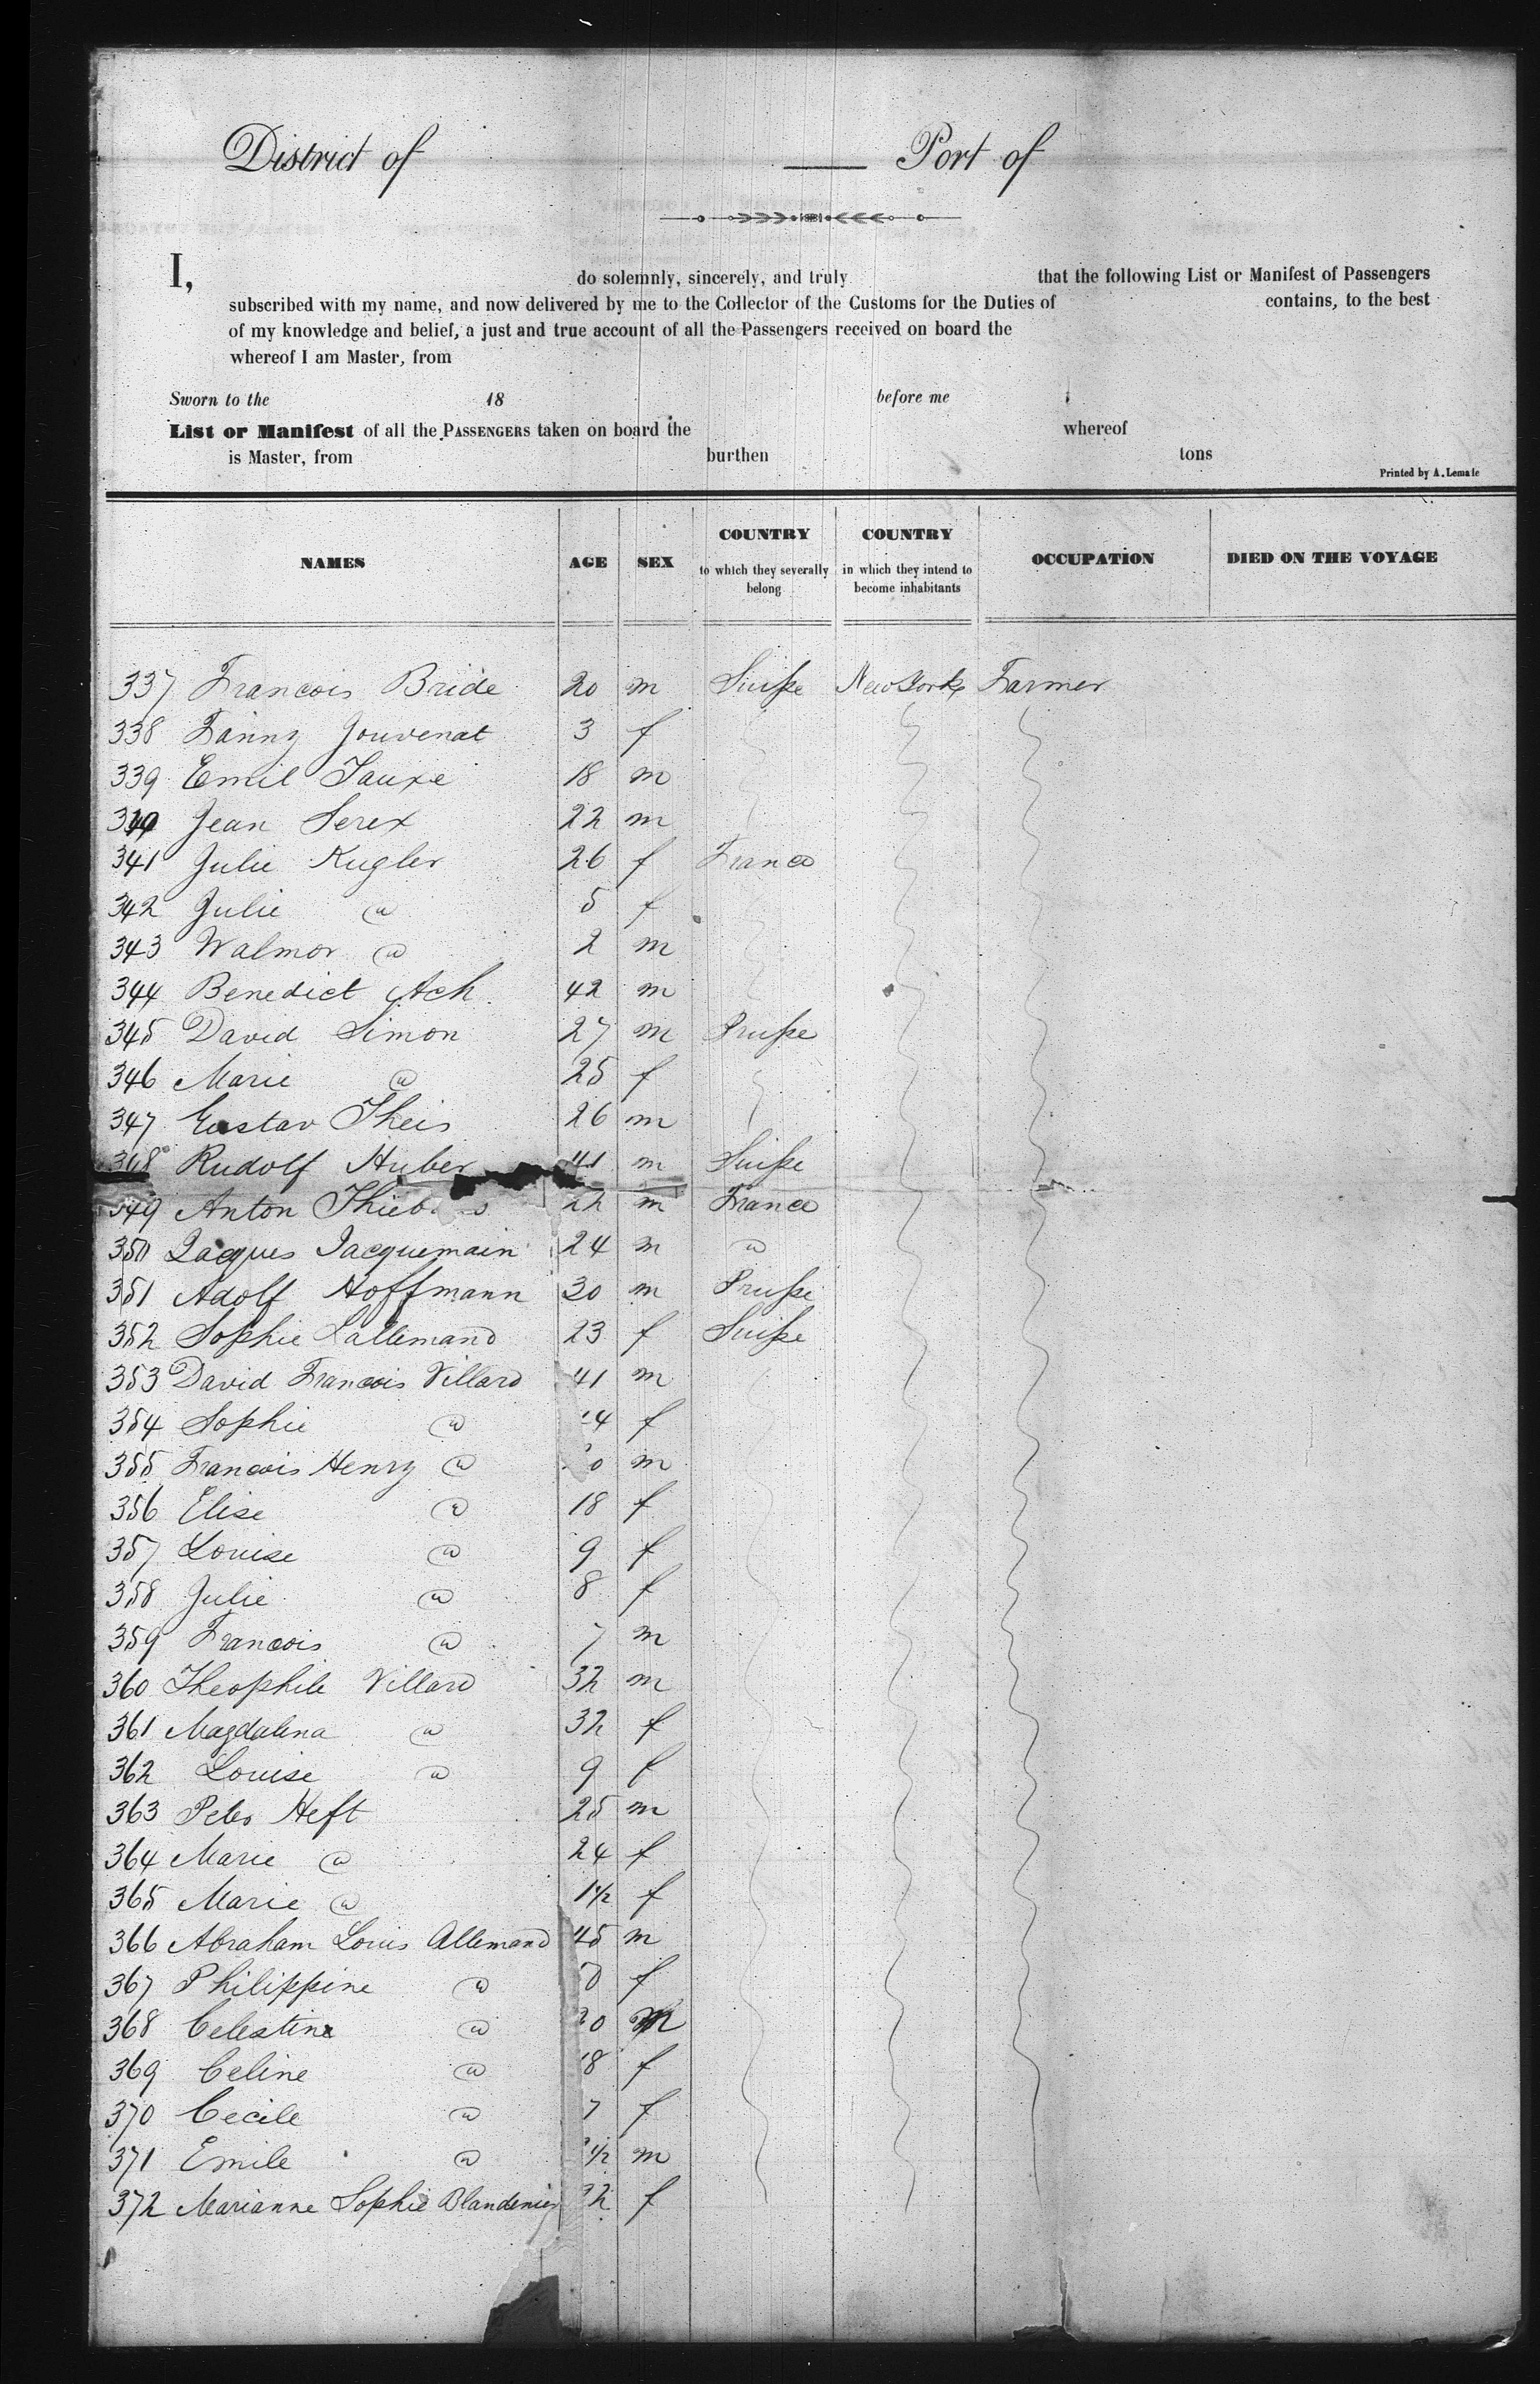 District of — Port of
I, do solemnly, sincerely, and truly that the following List or Manifest of Passengers
subscribed with my name, and now delivered by me to the Collector of the Customs for the Duties of contains, to the best
of my knowledge and belief, a just and true account of all the Passengers received on board the
whereof I am Master, from
Sworn to the 18 before me
List or Manifest of all the PASSENGERS taken on board the whereof
is Master, from burthen tons
Printed by A. Lemale
NAMES AGE SEX COUNTRY to which they severally belong COUNTRY in which they intend to become inhabitants OCCUPATION DIED ON THE VOYAGE
337 Francois Bride 20 m Suisse New York Farmer
338 Fanny Jouvenat 3 f
339 Emil Tauxe 18 m
340 Jean Serex 22 m
341 Julie Kugler 26 f France
342 Julie @ 5 f
343 Walmor @ 2 m
344 Benedict Ach 42 m
345 David Simon 27 m Prusse
346 Marie @ 25 f
347 Gustav Theis 26 m
348 Rudolf Huber 41 m Suisse
349 Anton 22 m France
350 Jacques Jacquemain 24 m @
351 Adolf Hoffmann 30 m Prusse
352 Sophie Lallemand 23 f Suisse
353 David Francois Villard 41 m
354 Sophie @ 4 f
355 Francois Henry @ 0 m
356 Elise @ 18 f
357 Louise @ 9 f
358 Julie @ 8 f
359 Francois @ 7 m
360 Theophile Villard 32 m
361 Magdalena @ 32 f
362 Louise @ 9 f
363 Peter Heft 25 m
364 Marie @ 24 f
365 Marie @ 1½ f
366 Abraham Louis Allemand 45 m
367 Philippine @ f
368 Celestine @ 20 m
369 Celine @ 18 f
370 Cecile @ 7 f
371 Emile @ ½ m
372 Marianne Sophie Blandenier f